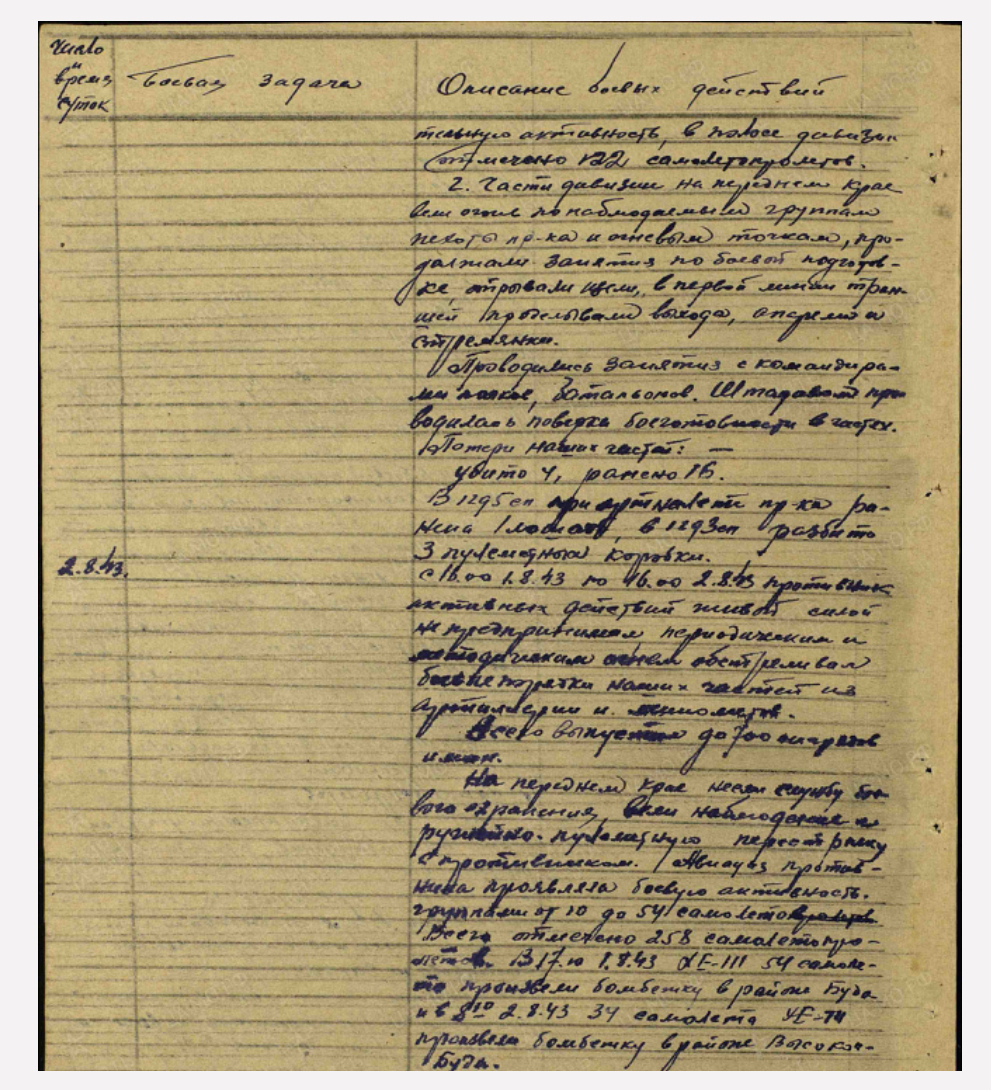 Число
и
время
суток
Боевая задача
Описание боевых действий
тельную активность, в полосе дивизии
отмечено 122 самолетопролетов.
2. Части дивизии на переднем крае
вели огонь по наблюдаемым группам
пехоты пр-ка и огневым точкам, про-
должали занятия по боевой подготов-
ке, отрывали щели, в первой линии тран-
шей проделывали выхода, аппарели и
стремянки.
Проводились занятия с командира-
ми полков, батальонов. Штадивом про
водилась поверка боеготовности в частях.
Потери наших частей: —
убито 4, ранено 16.
В 1295 сп при артналете пр-ка ра-
нена 1 лошадь, в 1293 сп разбито
3 пулеметных коробки.
2.8.43.
с 16.00 1.8.43 по 16.00 2.8.43 противник
активных действий живой силой
не предпринимал периодическим и
методическим огнем обстреливал
боевые порядки наших частей из
артиллерии и минометов.
Всего выпустил до 700 снарядов
и мин.
На переднем крае несли службу бое-
вого охранения, вели наблюдение и
ружейно-пулеметную перестрелку
с противником. Авиация против-
ника проявляла боевую активность.
группами от 10 до 54 самолето
Всего отмечено 258 самолетопро-
летов. В 17.10 1.8.43 54 самоле-
та произвели бомбежку в районе Буда
и в 8 10 2.8.43 34 самолета
произвели бомбежку в районе Высокое-
Буда.